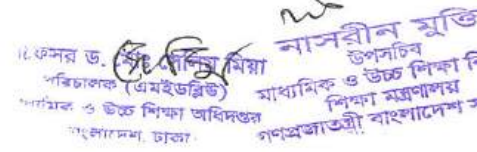 ড. মিয়া
পরিচালক (এমইডব্লিউ)
মাধ্যমিক ও উচ্চ শিক্ষা অধিদপ্তর
বাংলাদেশ, ঢাকা।
নাসরীন মুক্তি
উপসচিব
মাধ্যমিক ও উচ্চ শিক্ষা
শিক্ষা মন্ত্রণালয়
গণপ্রজাতন্ত্রী বাংলাদেশ